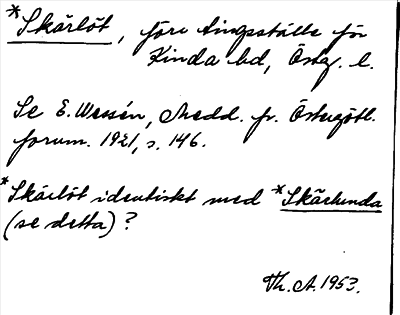 *Skärlöt, före tingsställe för
Kinda hd, Östg. l.
Se E. Wessén, Medd. fr. Östergötl.
fornm. 1921, s. 146.
*Skärlöt identiskt med *Skärlunda
(se detta)?
Th. A. 1953.